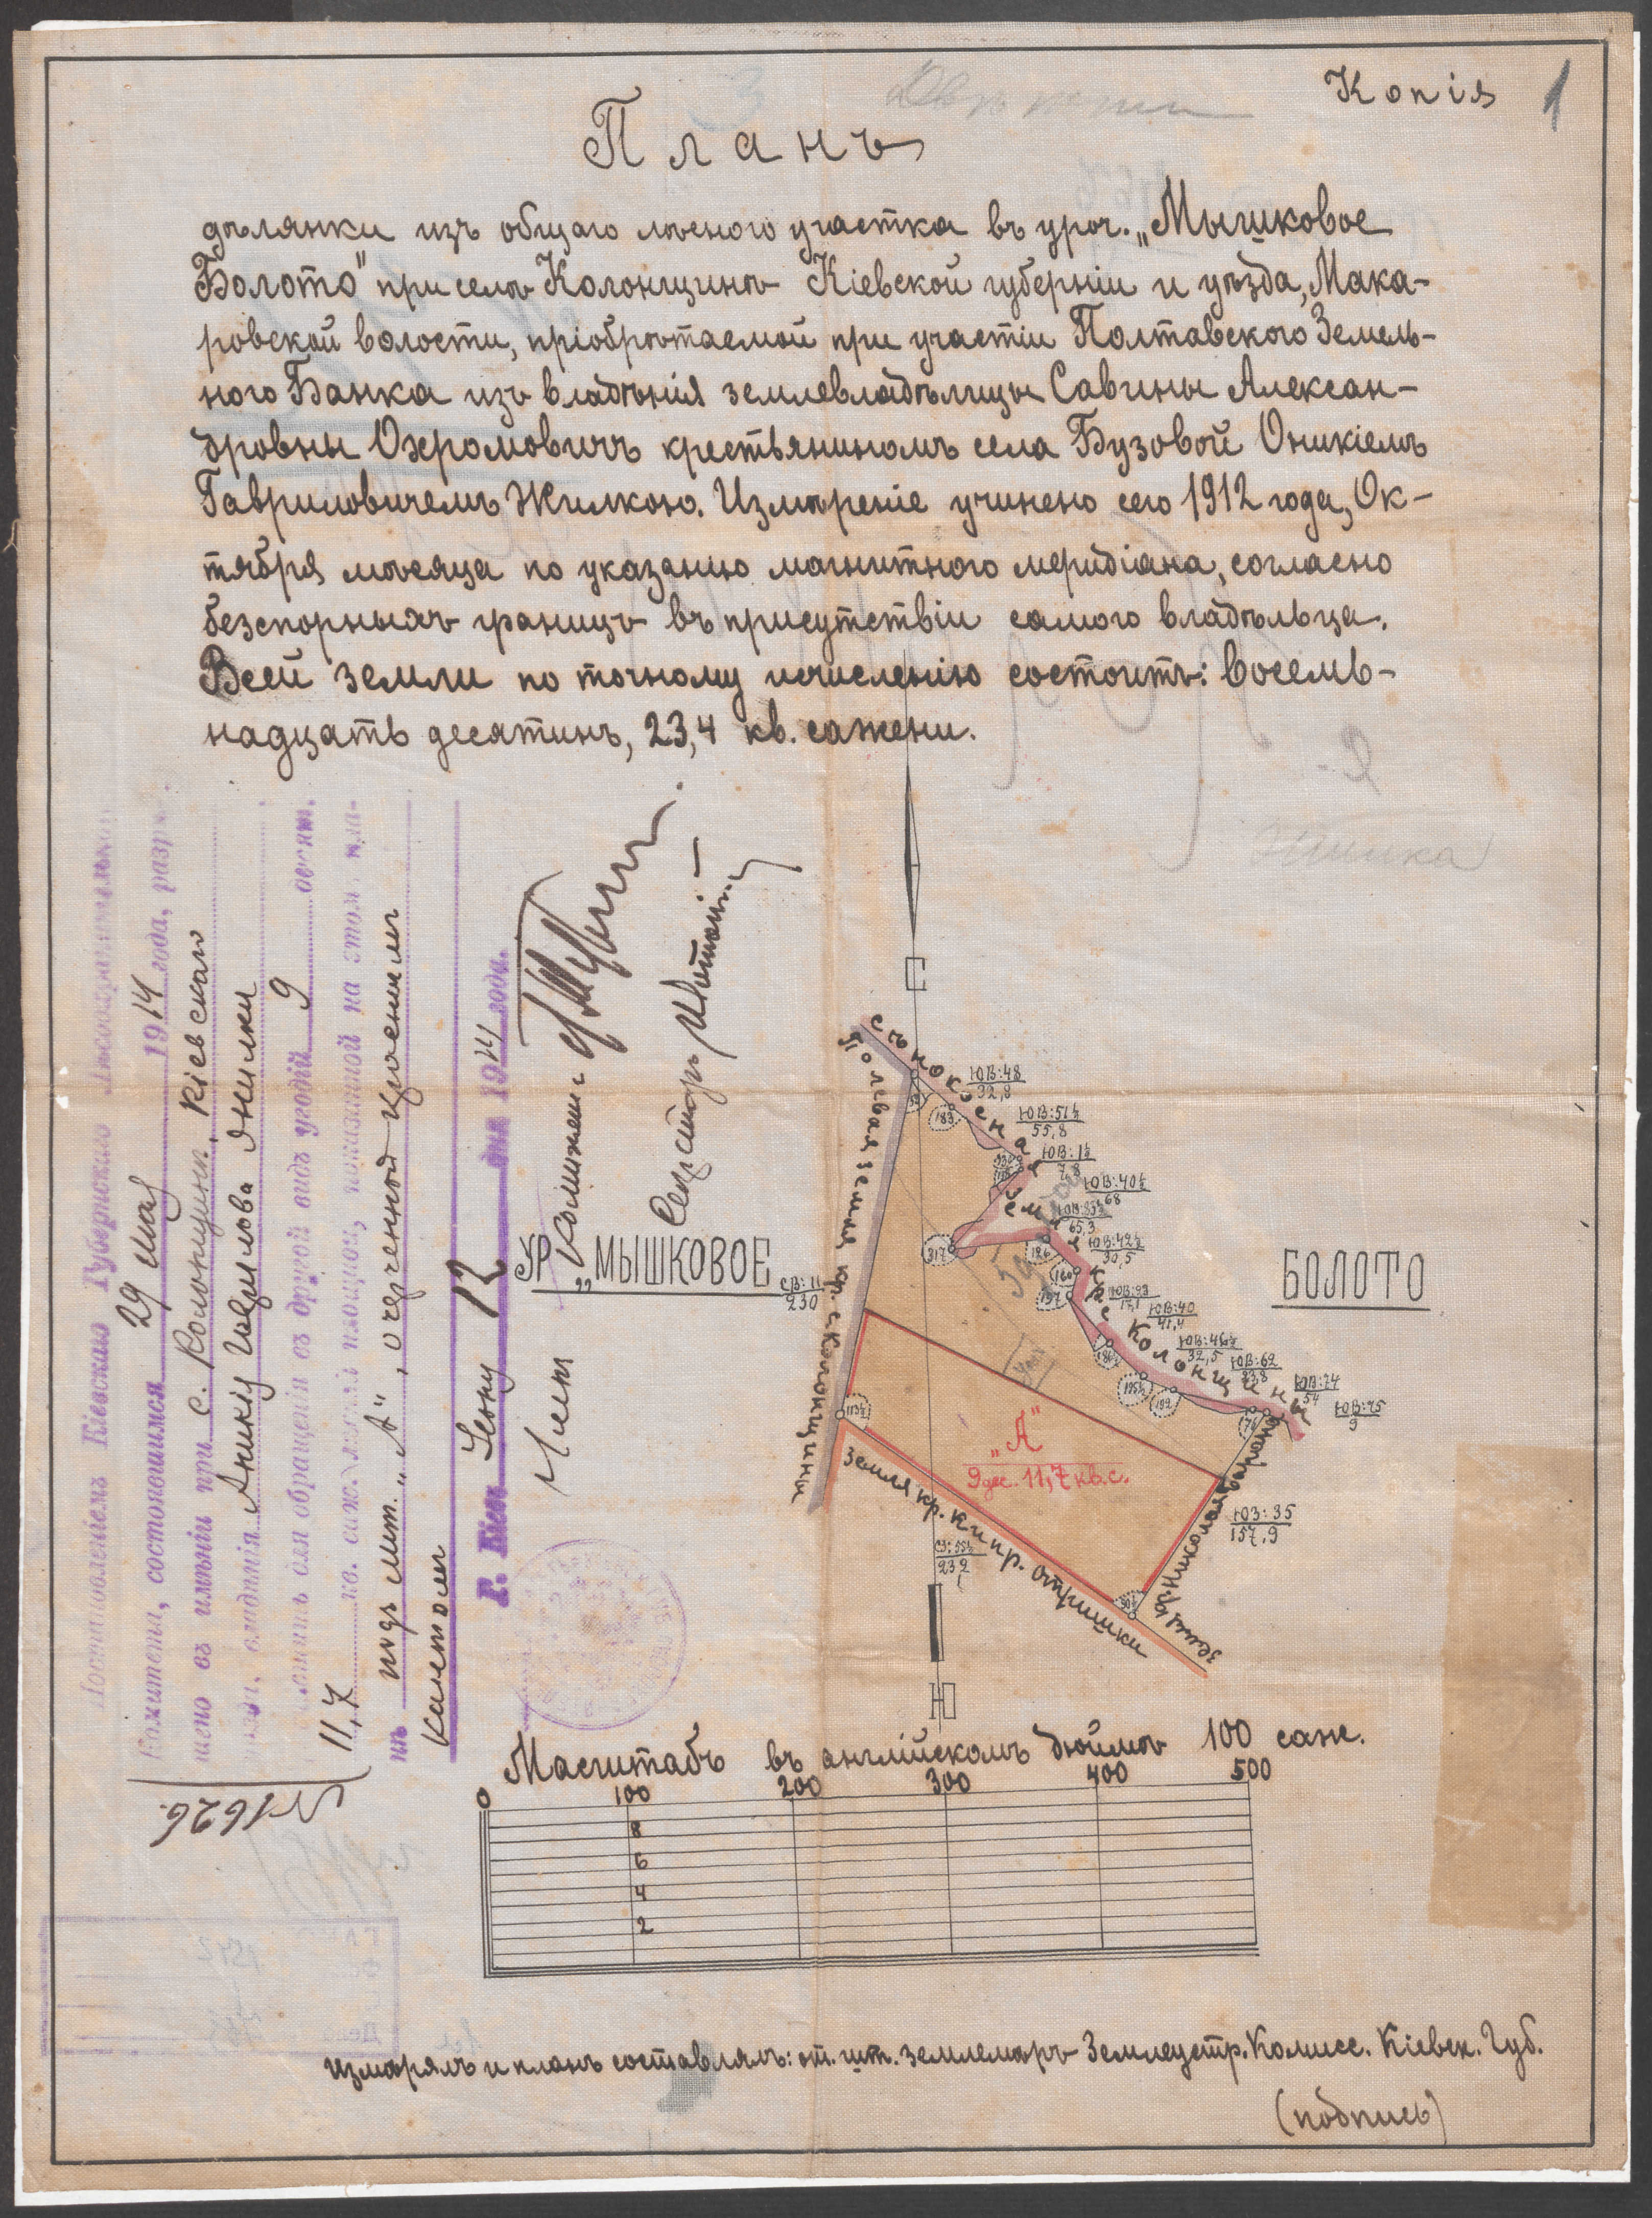 Копія
1
Планъ
дѣлянки изъ общаго лѣсного участка въ уроч. „Мышковое
Болото" при селѣ Колонщинѣ Кіевской губерніи и уѣзда, Мака-
ровской волости, пріобрѣтаемой при участіи Полтавского Земель-
ного Банка изъ владѣнія землевладѣлицы Савины Алексан-
дровны Охромовичъ крестьяниномъ села Бузовой Оникіемъ
Гавриловичемъ Жилкою. Измѣреніе учинено сего 1912 года, Ок-
тября мѣсяца по указанію магнитного меридіана, согласно
безспорныхъ границъ въ присутствіи самого владѣльца.
Всей земли по точному исчисленію состоитъ: восемь-
надцать десятинъ, 23,4 кв. сажени.
Жилка
Постановленіемъ Кіевскаго Губернскаго Лѣсоохранительнаго
Комитета, состоявшимся 29 мая 1914 года, разрѣ
шено въ имѣніи при с. Колонщинѣ, Кіевскаго
уѣзда, владѣнія Аникія Гаврилова Жилки
для обращенія въ другой видъ угодій 9 десят.
11,7 кв. саж. лѣсной площади, показанной на этом пла-
нѣ подъ лит. „А", очерченной красными
кантом
Г. Кіевъ Іюня 12 дня 1914 года.
Членъ
Секретарь
N 1626.
С
УР „МЫШКОВОЕ
БОЛОТО
сѣнокосная земля кр. с. Колонщины
Полевая земля кр. с. Колонщины
СВ:11
230
ЮВ:48
32,8
ЮВ:51½
55,8
ЮВ:1½
7,8
ЮВ:40½
68
65,3
ЮВ:42½
30,5
ЮВ:40
41,4
ЮВ:46½
32,5
ЮВ:62
33,8
ЮВ:74
54
ЮВ:75
9
ЮЗ:35
157,9
СЗ:55½
232
183
317
126
160
192
113½
„А"
9 дес. 11,7 кв.с.
Земля кр. Кипр. Отришки
Земля кр. Никола
Ю
Масштабъ въ англійскомъ дюймѣ 100 саж.
0 100 200 300 400 500
8
6
4
2
Измѣрялъ и планъ составлялъ: от. шт. землемѣръ Землеустр. Комисс. Кіевск. Губ.
(подпись)